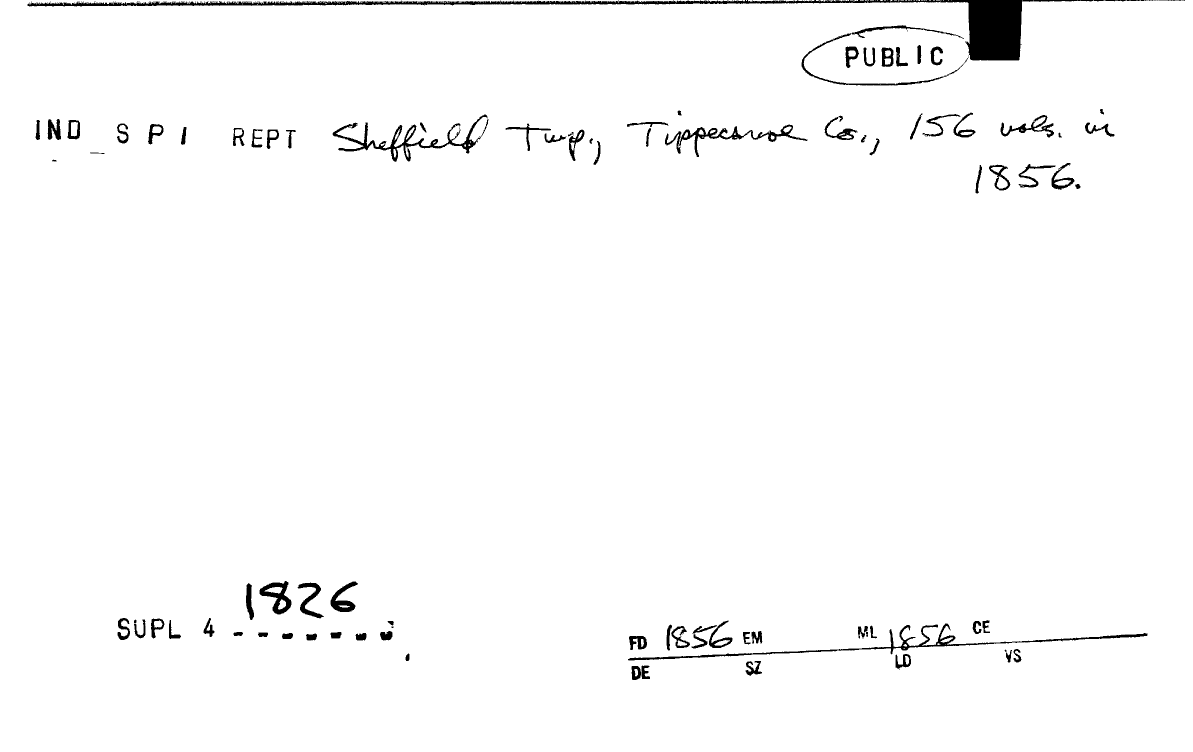 PUBLIC
IND S P I REPT Sheffield Twp., Tippecanoe Co., 156 vols. in
1856.
1826
SUPL 4 - - - - - - -
FD 1856 EM ML 1856 CE
DE SZ LD VS